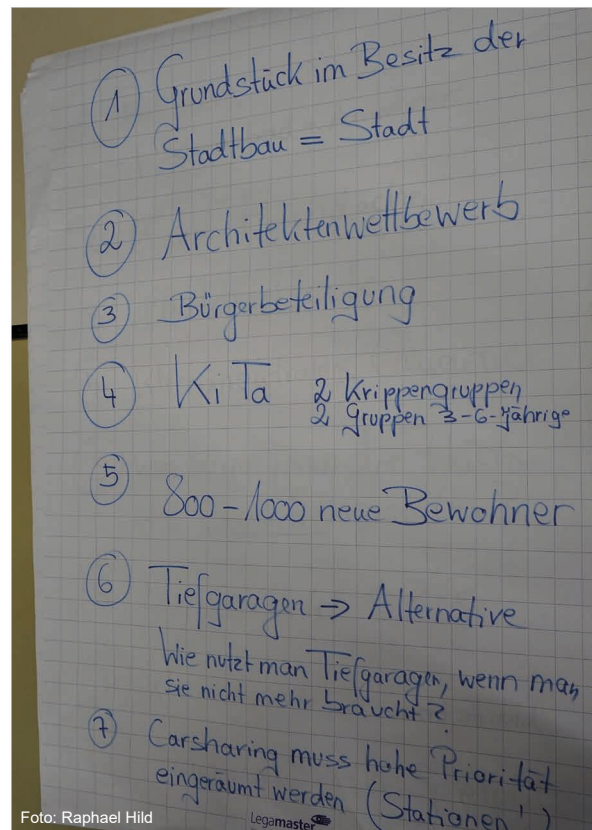 1 Grundstück im Besitz der
Stadtbau = Stadt
2 Architektenwettbewerb
3 Bürgerbeteiligung
4 KiTa 2 Krippengruppen
2 Gruppen 3-6-jährige
5 800-1000 neue Bewohner
6 Tiefgaragen → Alternative
Wie nutzt man Tiefgaragen, wenn man
sie nicht mehr braucht?
7 Carsharing muss hohe Priorität
eingeräumt werden (Stationen!)
Foto: Raphael Hild
Legamaster